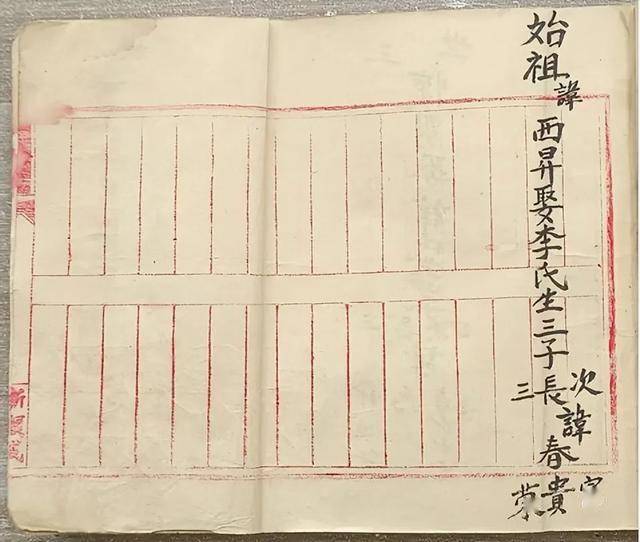 次
始祖諱西昇娶李氏生三子長諱春貴
三